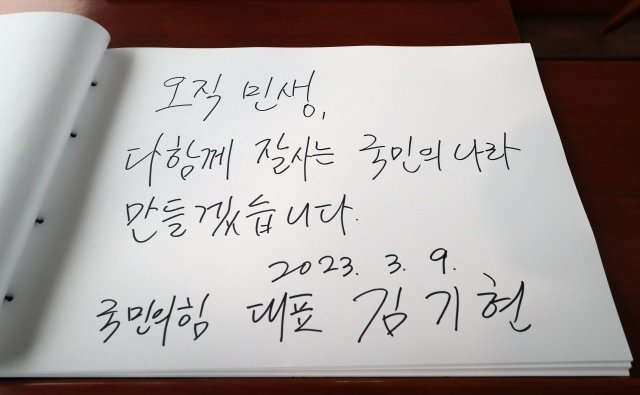 오직 민생,
다함께 잘사는 국민의 나라
만들겠습니다.
2023. 3. 9.
국민의힘 대표 김기현